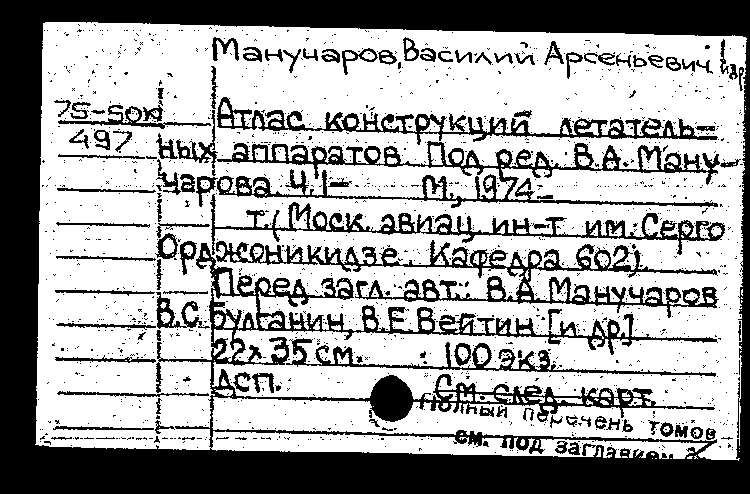 Манучаров, Василий Арсеньевич
75-50к
497
Атлас конструкций летатель-
ных аппаратов. Под ред. В.А. Ману-
чарова. Ч.1- М., 1974-
т. (Моск. авиац. ин-т им. Серго
Орджоникидзе. Кафедра 602)
Перед загл. авт.: В.А. Манучаров
В.С. Булганин, В.Е. Вейтин [и др.]
22х35 см. : 100 экз.
Дсп. См. след. карт.
Полный перечень томов
см. под заглавием